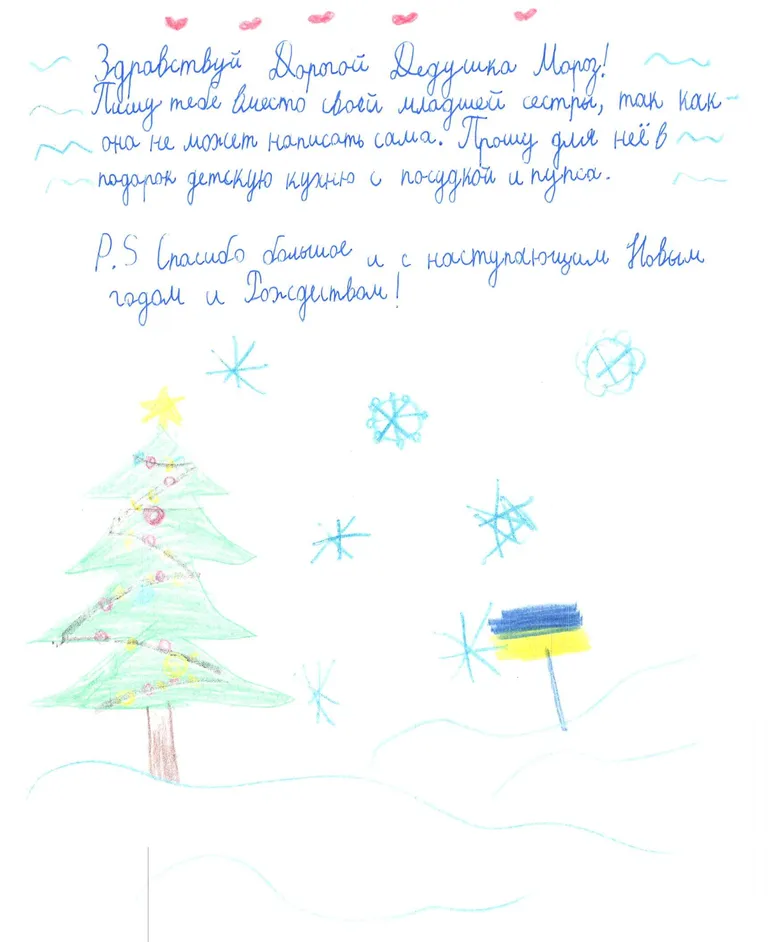 Здравствуй Дорогой Дедушка Мороз!
Пишу тебе вместо своей младшей сестры, так как
она не может написать сама. Прошу для неё в
подарок детскую кухню с посудкой и пупса.
P.S Спасибо большое и с наступающим Новым
годом и Рождеством!